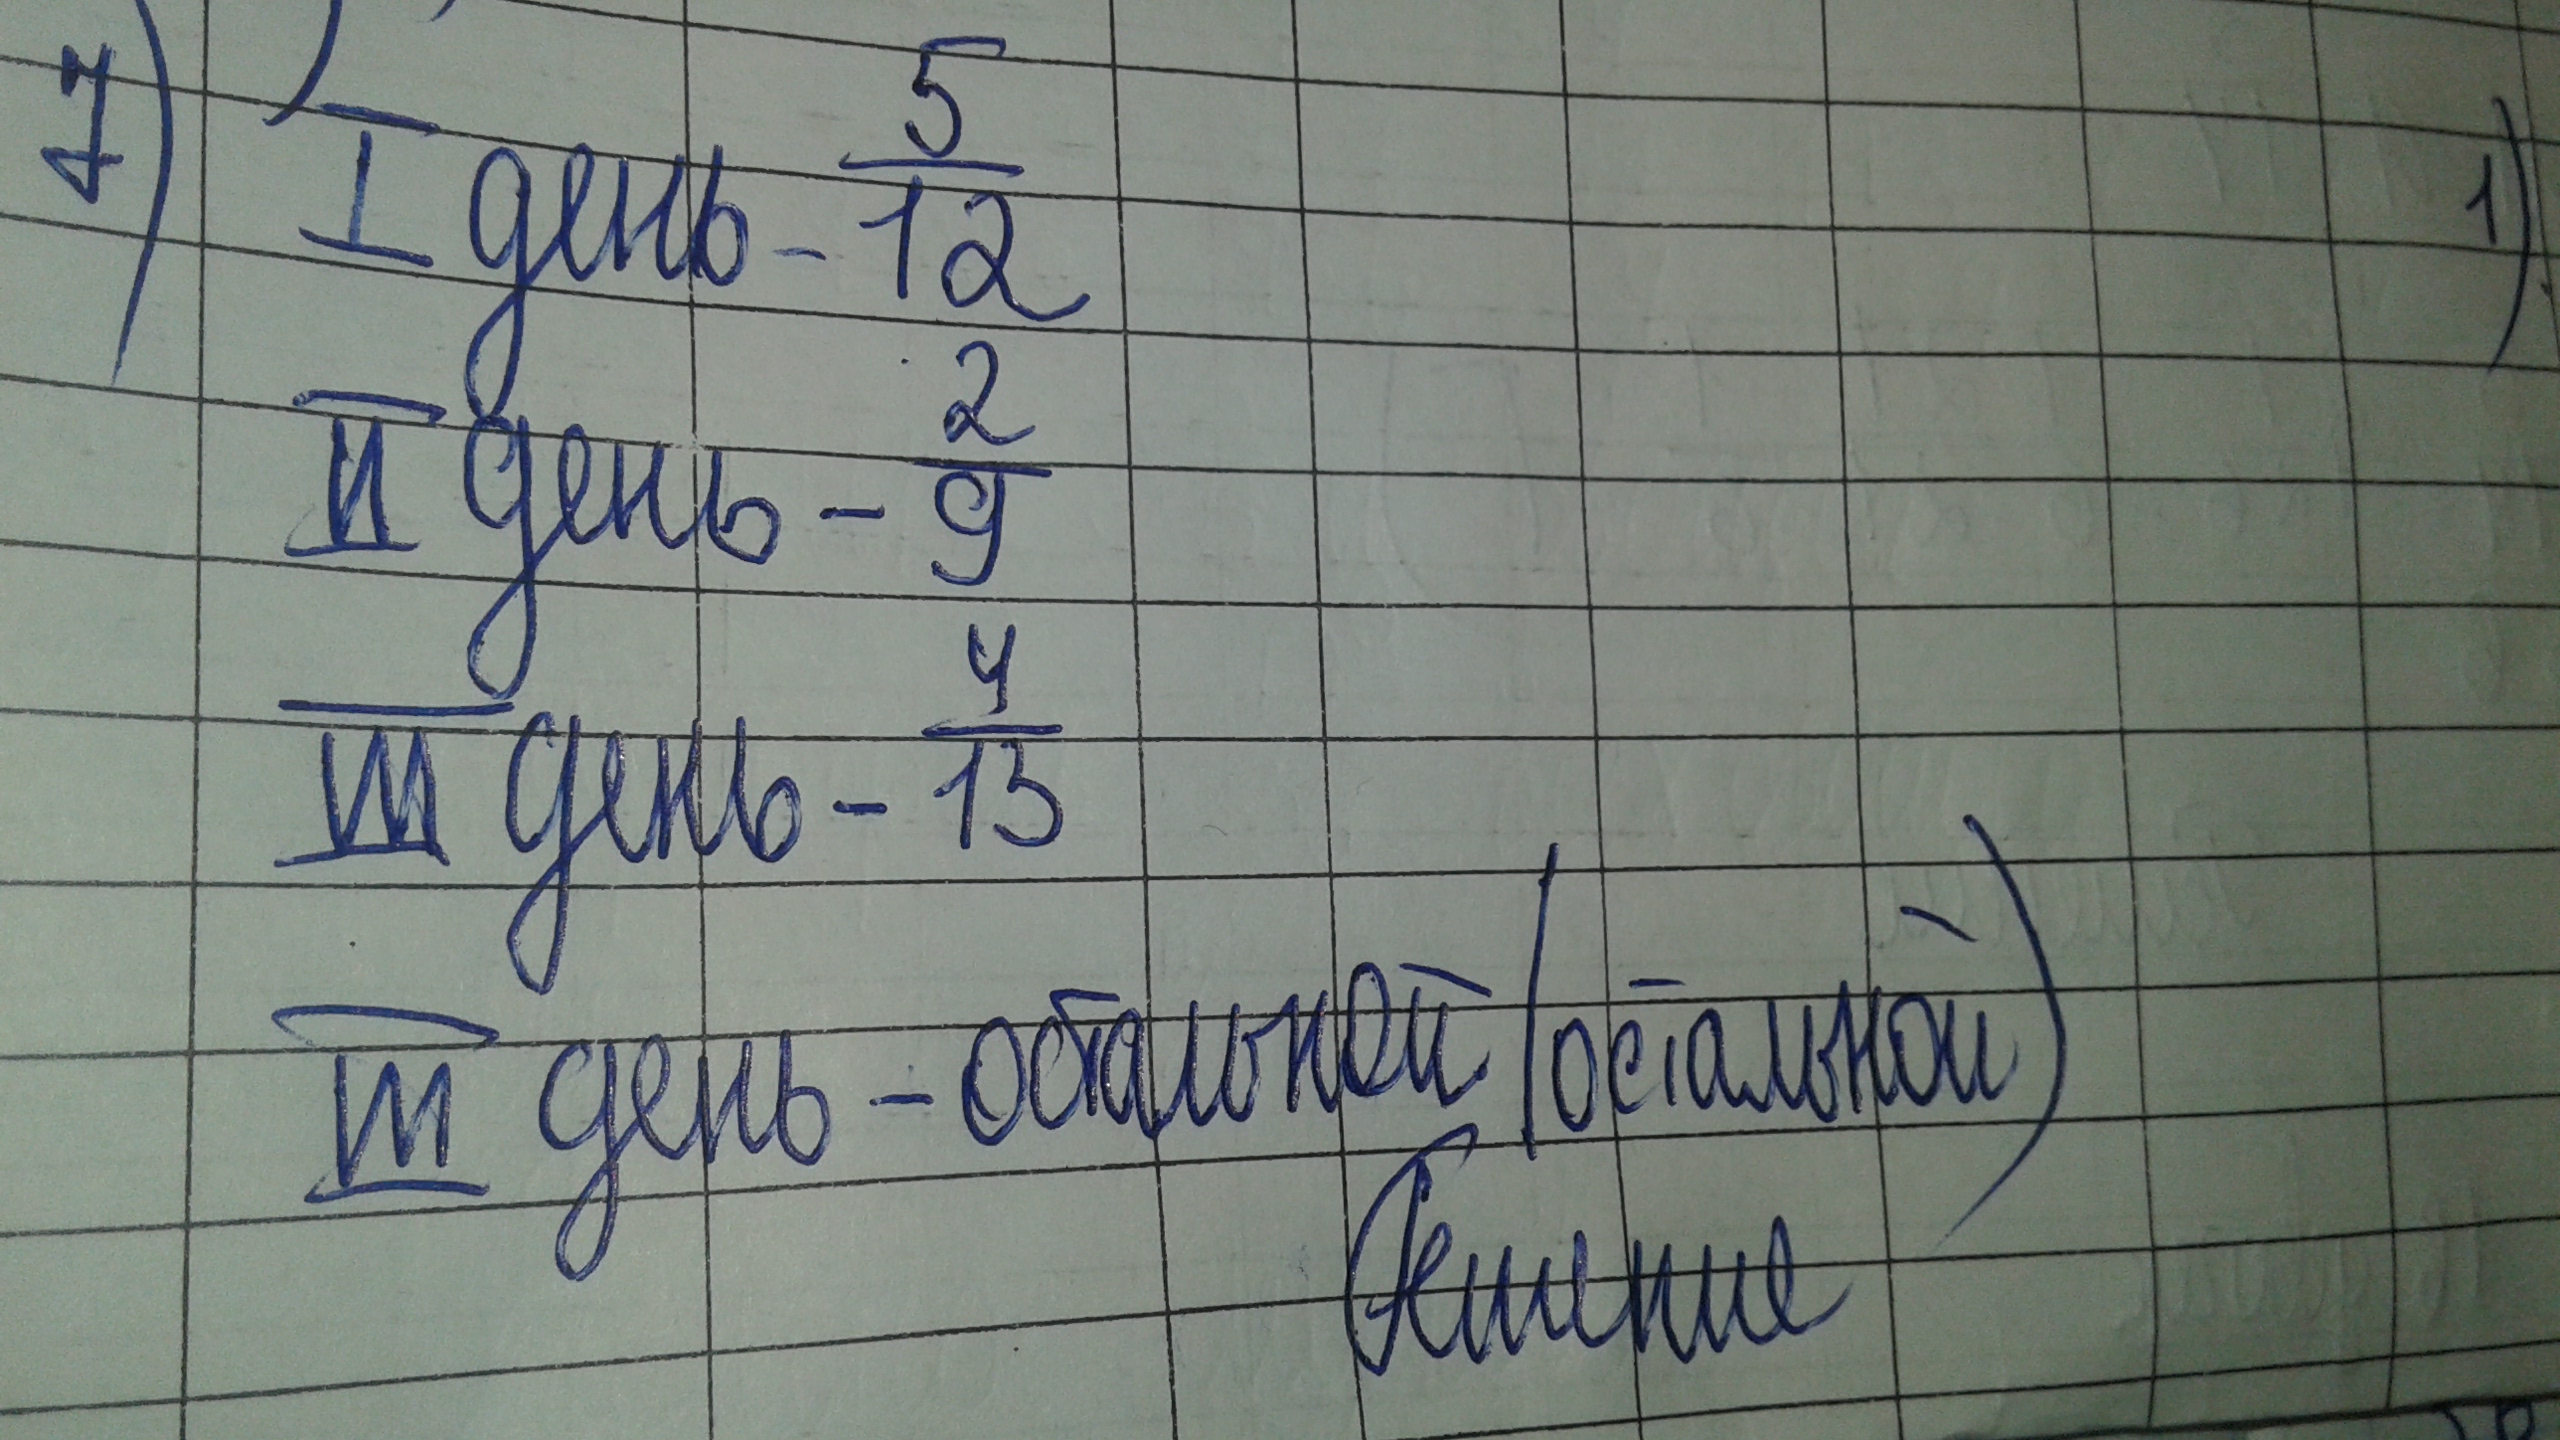 7)
I день - 5/12
II день - 2/9
III день - 4/13
III день - остальной (остальной)
Решение
1)